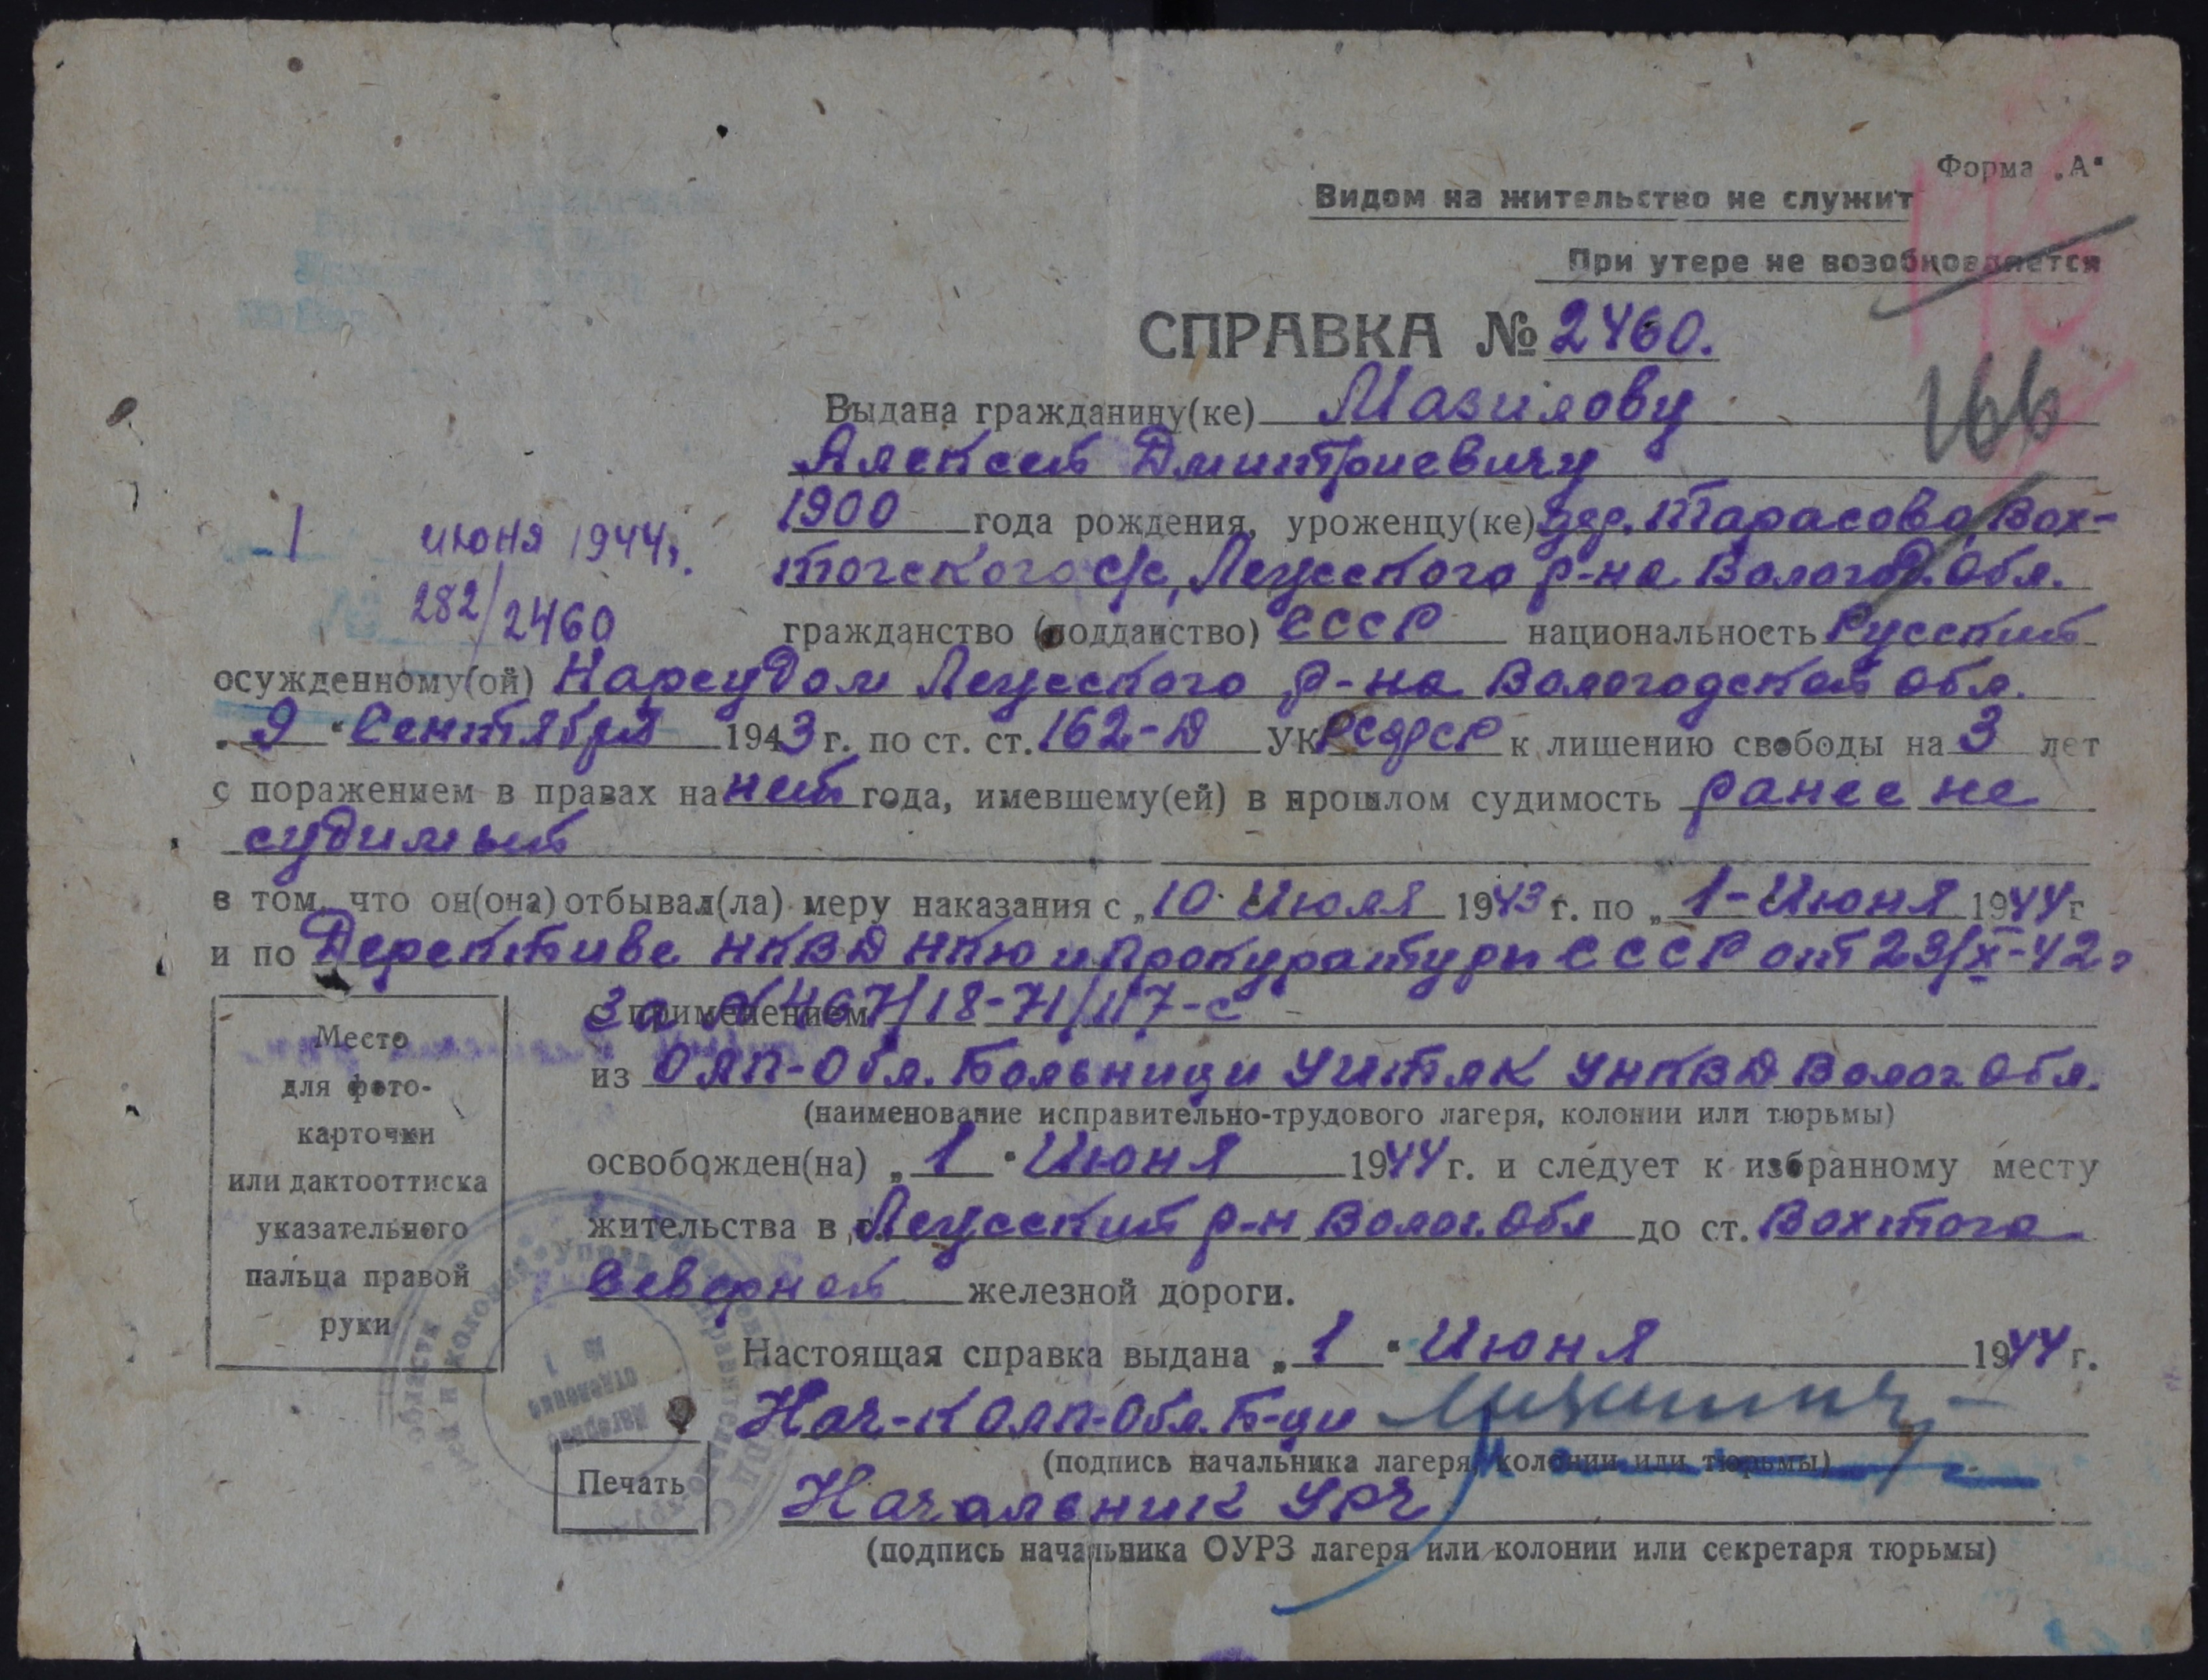 Форма „А“
Видом на жительство не служит
При утере не возобновляется
СПРАВКА № 2460.
166
Выдана гражданину(ке) Мазилову
Алексей Дмитриевичу
1900 года рождения, уроженцу(ке) дер. Тарасово, Вох-
тогского с/с, Леусского р-на Вологод. Обл.
1 июня 1944г.
282/2460
гражданство (подданство) СССР национальность Русский
осужденному(ой) Нарсудом Леусского р-на Вологодской обл.
„9“ Сентября 1943 г. по ст. ст. 162-Д УК РСФСР к лишению свободы на 3 лет
с поражением в правах на нет года, имевшему(ей) в прошлом судимость ранее не
судимый
в том, что он(она) отбывал(ла) меру наказания с „10 Июля 1943 г. по „1-Июня 1944 г
и по Дерективе НКВД НКЮ и Прокуратуры СССР от 23/X-42г
за № 467/18-71/117-с
с применением
из ОЛП-Обл. Больници УИТЛК УНКВД Волог Обл.
(наименование исправительно-трудового лагеря, колонии или тюрьмы)
освобожден(на) „1“ Июня 1944 г. и следует к избранному месту
жительства в г. Леусский р-н Волог. Обл до ст. Вохтога
Северной железной дороги.
Настоящая справка выдана „1“ Июня 1944 г.
Место
для фото-
карточки
или дактооттиска
указательного
пальца правой
руки
Нач-к ОЛП-Обл. Б-ци
(подпись начальника лагеря, колонии или тюрьмы)
Печать
Начальник УРЧ
(подпись начальника ОУРЗ лагеря или колонии или секретаря тюрьмы)